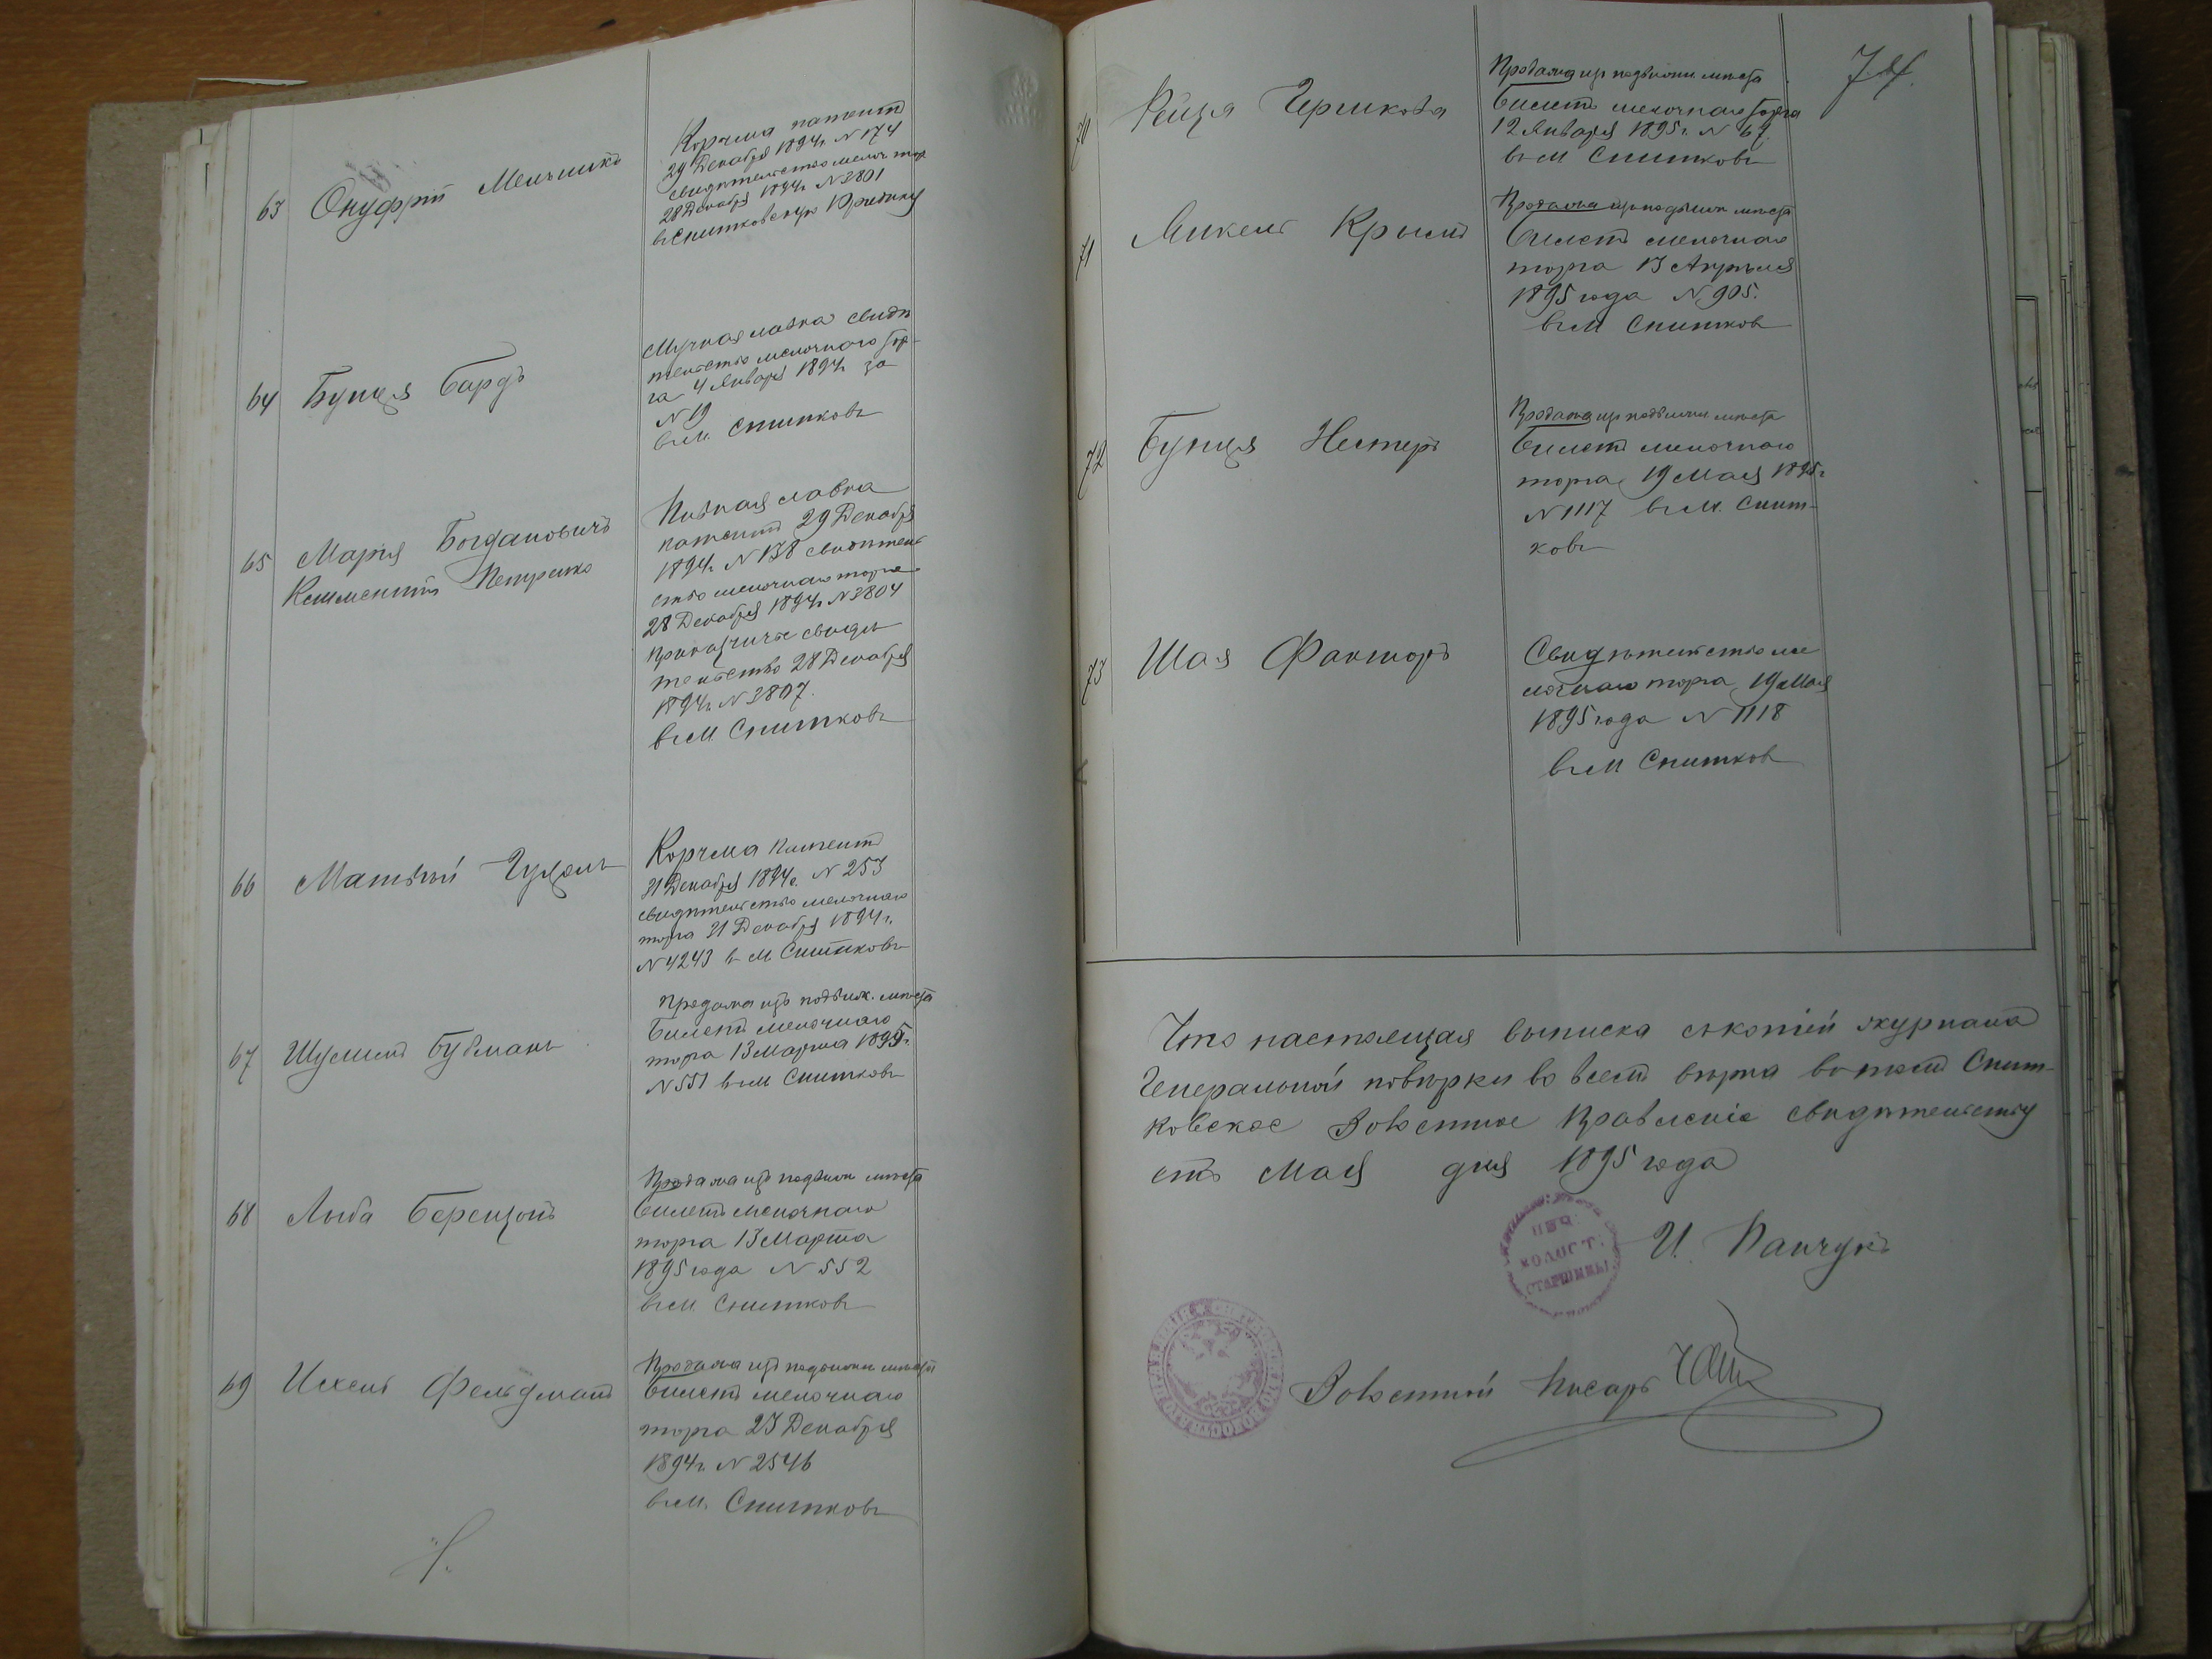 63 Онуфрій Менчинко
Корчма патентъ
29 Декабря 1894г. N 174
свидѣтельство мелоч тор
28 Декабря 1894г N 3801
въ Снитковскую Юридику
64 Бунця Бардъ
Мучная лавка свидѣ
тельство мелочнаго тор-
га 4 Января 1894г за
N 19
въ м. Снитковъ
65 Марія Богдановичъ
Климентій Петренко
Пивная лавка
патентъ 29 Декабря
1894г. N 138 свидѣтель
ство мелочнаго торга
28 Декабря 1894г. N 3804
приказчичье свидѣ
тельство 28 Декабря
1894г. N 3807.
въ м. Снитковъ
66 Матвѣй
Корчма патентъ
31 Декабря 1894г. N 253
свидѣтельство мелочнаго
торга 31 Декабря 1894г.
N 4243 в м. Снитковъ
67 Шулимъ Бубманъ
Продажа изъ подвиж. мѣста
билетъ мелочнаго
торга 13 Марта 1895г.
N 551 въ м Снитковъ
68 Лыба Беренцонъ
Продажа изъ подвижн мѣста
билетъ мелочнаго
торга 13 Марта
1895 года N 552
въ м. Снитковъ
69 Ихель Фельдманъ
Продажа изъ подвижн. мѣста
билетъ мелочнаго
торга 23 Декабря
1894г. N 2546
въ м. Снитковъ
74.
70 Рейзя Гершкова
Продажа изъ подвижн мѣста
билетъ мелочнаго торга
12 Января 1895г. N 67.
въ м Снитковъ
71 Микель Крымъ
Продажа изъ подвижн мѣста
билетъ мелочнаго
торга 13 Апрѣля
1895 года N 905.
въ м Снитков
72 Бунця Нестеръ
Продажа изъ подвижн мѣста
билетъ мелочнаго
торга 19 Мая 1895г
N 1117 въ м. Снит-
ковъ
73 Шая Факторъ
Свидѣтельство ме
лочнаго торга 19 Мая
1895 года N 1118
въ м Снитков
Что настоящая выписка съ копіей журнала
Генеральной повѣрки во всемъ вѣрна въ томъ Снит-
ковское Волостное Правленіе свидѣтельству
етъ Мая дня 1895 года
ПЕЧ.
ВОЛОСТ.
СТАРШИНЫ
И. Панчукъ
Волостной Писарь